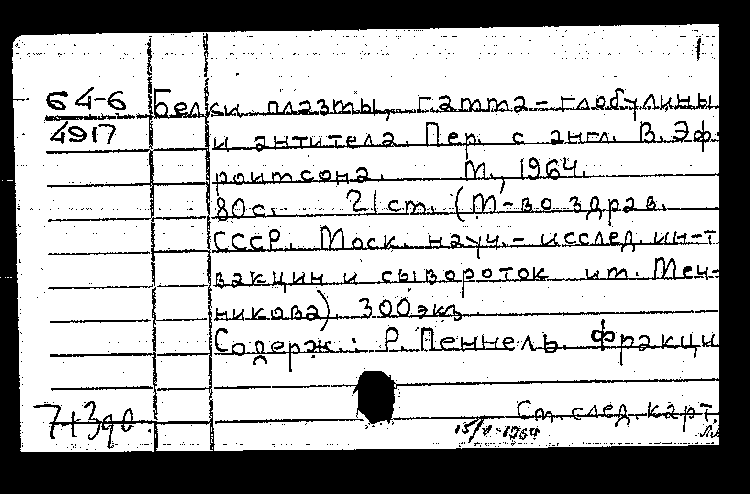 1
64-6 Белки плазмы, гамма-глобулины
4917 и антитела. Пер. с англ. В. Эф-
роимсона. М., 1964.
80с. 21 см. (М-во здрав.
СССР. Моск. науч.-исслед. ин-т
вакцин и сывороток им. Меч-
никова). 300экз.
Содерж.: Р. Пеннель. Фракци
См. след. карт.
7+3др.